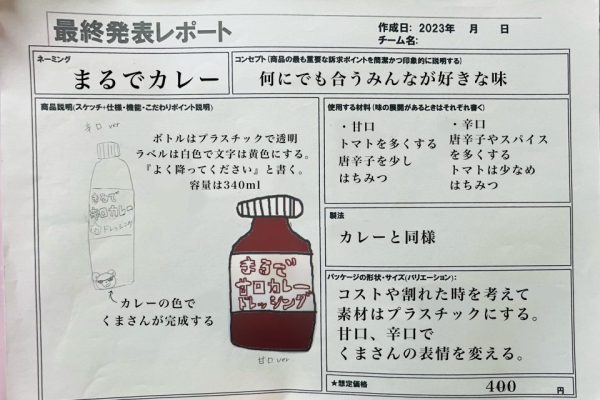 最終発表レポート
作成日: 2023年　月　日
チーム名:
ネーミング
まるでカレー
コンセプト(商品の最も重要な訴求ポイントを簡潔かつ印象的に説明する)
何にでも合うみんなが好きな味
商品説明(スケッチ・仕様・機能・こだわりポイント説明)
辛口 ver
ボトルはプラスチックで透明
ラベルは白色で文字は黄色にする。
『よく降ってください』と書く。
容量は340ml
まるで
辛口カレー
ドレッシング
カレーの色で
くまさんが完成する
まるで
甘口カレー
ドレッシング
甘口 ver
使用する材料(味の展開があるときはそれぞれ書く)
・甘口
トマトを多くする
唐辛子を少し
はちみつ
・辛口
唐辛子やスパイス
を多くする
トマトは少なめ
はちみつ
製法
カレーと同様
パッケージの形状・サイズ(バリエーション):
コストや割れた時を考えて
素材はプラスチックにする。
甘口、辛口で
くまさんの表情を変える。
★想定価格
400 円